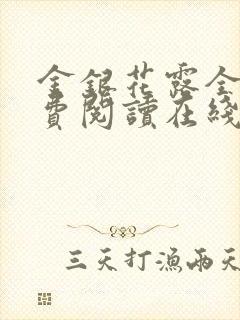 金銀花露全
費閱讀在綫
三天打漁兩天